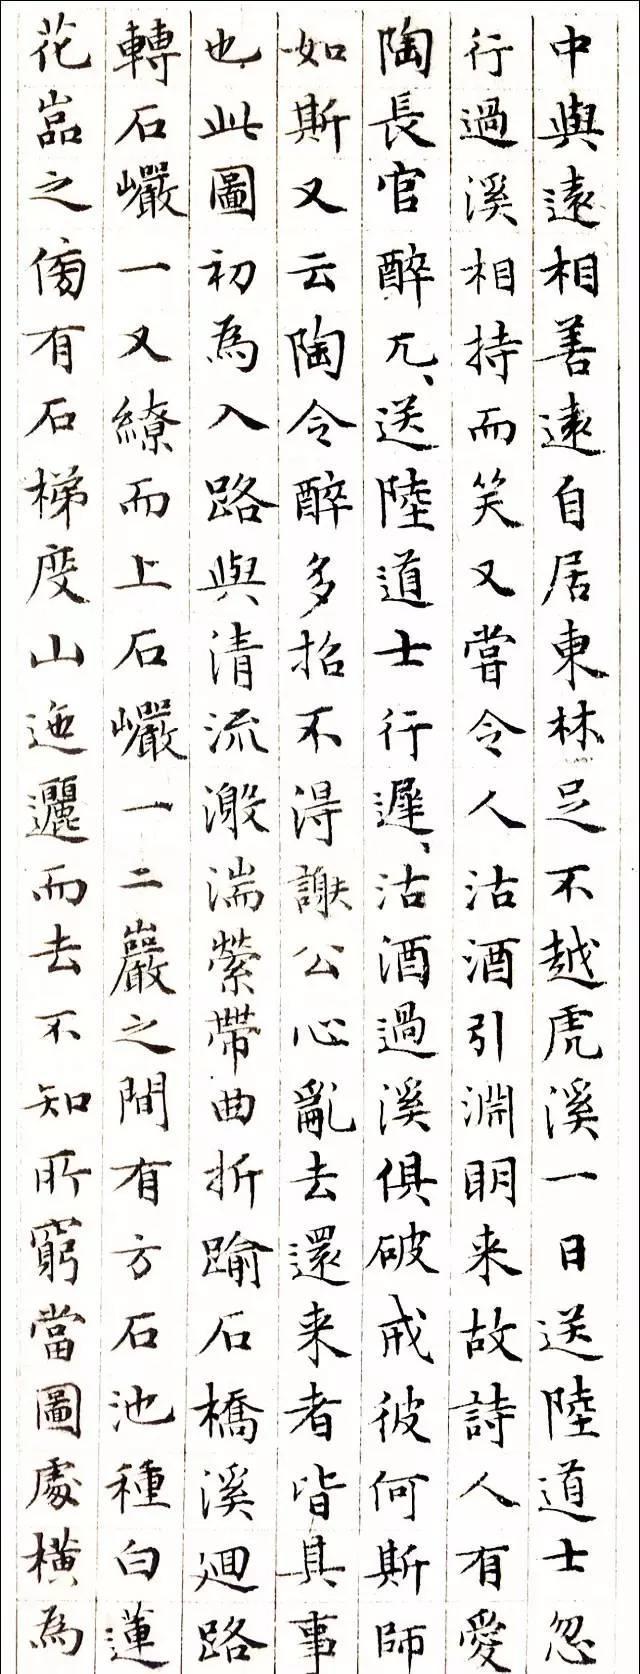 中與遠相善遠自居東林足不越虎溪一日送陸道士忽
行過溪相持而笑又嘗令人沽酒引淵明来故詩人有愛
陶長官醉兀兀送陸道士行遲遲沽酒過溪俱破戒彼何斯師
如斯又云陶令醉多招不得謝公心亂去還来者皆其事
也此圖初為入路與清流激湍縈帶曲折踰石橋溪迴路
轉石巖一又繚而上石巖一二巖之間有方石池種白蓮
花嵓之傍有石梯度山迤邐而去不知所窮當圖處橫為